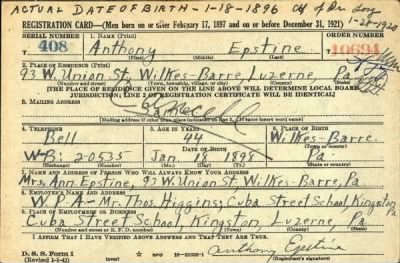 ACTUAL DATE OF BIRTH - 1-18-1896
1-28-1920
REGISTRATION CARD—(Men born on or after February 17, 1897 and on or before December 31, 1921)
SERIAL NUMBER 1. NAME (Print) ORDER NUMBER
408 Anthony Epstine 10694
(First) (Middle) (Last)
2. PLACE OF RESIDENCE (Print)
93 W. Union St, Wilkes-Barre, Luzerne, Pa
(Number and street) (Town, township, village, or city) (County) (State)
[THE PLACE OF RESIDENCE GIVEN ON THE LINE ABOVE WILL DETERMINE LOCAL BOARD
JURISDICTION; LINE 2 OF REGISTRATION CERTIFICATE WILL BE IDENTICAL]
3. MAILING ADDRESS
[Mailing address if other than place indicated on line 2. If same insert word same]
4. TELEPHONE 5. AGE IN YEARS 6. PLACE OF BIRTH
Bell 44 Wilkes-Barre
DATE OF BIRTH (Town or county)
W-B. 2-0535 Jan 18 1898 Pa
(Exchange) (Number) (Mo.) (Day) (Yr.) (State or country)
7. NAME AND ADDRESS OF PERSON WHO WILL ALWAYS KNOW YOUR ADDRESS
Mrs. Ann. Epstine, 93 W. Union St. Wilkes-Barre, Pa
8. EMPLOYER'S NAME AND ADDRESS
W.P.A - Mr. Thos. Higgins, Cuba Street School, Kingston Pa
9. PLACE OF EMPLOYMENT OR BUSINESS
Cuba Street School, Kingston, Luzerne, Pa
(Number and street or R. F. D. number) (Town) (County) (State)
I AFFIRM THAT I HAVE VERIFIED ABOVE ANSWERS AND THAT THEY ARE TRUE.
D. S. S. Form 1
(Revised 1-1-42) (over) Anthony Epstine